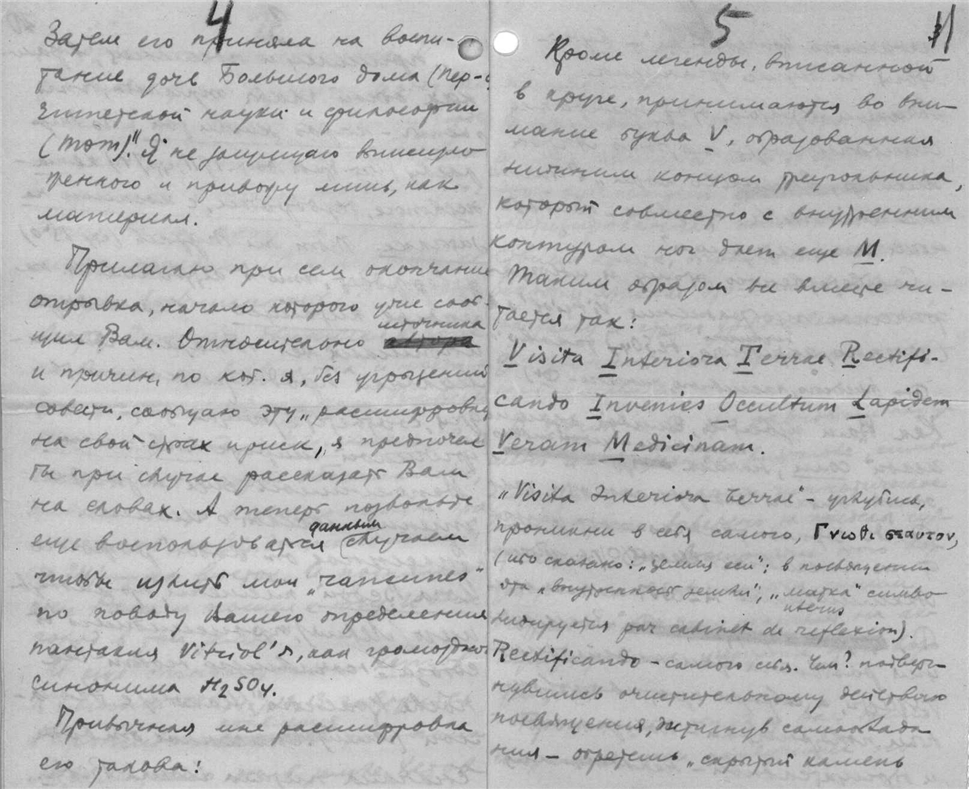 4
Затем его приняла на воспи-
тание дочь Большого дома (пер-
египетской науки и философии
(Тот)." Я не защищаю
и привожу лишь, как
материал.
Прилагаю при сем окончание
отрывка, начало которого уже сооб-
щил Вам. Относительно источника
и причин, по кот. я, без угрызений
совести, сообщаю эту „расшифровку
на свой страх и риск, я предпочел
бы при случае рассказать Вам
на словах. А теперь позвольте
еще воспользоваться данным случаем
чтобы излить мои
по поводу Вашего определения
пантакля Vitriol'я, как громоздкого
синонима H2SO4.
Привычная мне расшифровка
его такова:
5
11
Кроме легенды, вписанной
в круге, принимаются во вни-
мание буква V, образованная
нижним концом треугольника,
который совместно с внутренним
контуром ног дает еще M.
Таким образом все вместе чи-
тается так:
Visita Interiora Terrae Rectifi-
cando Invenies Occultum Lapidem
Veram Medicinam.
„Visita Interiora Terrae" – углубись,
проникни в себя самого, Γνωθι σεαυτον,
(ибо сказано: „земля еси"; в посвящении
эта „внутренность земли", „матка" симво-
лизируется par cabinet de réflexion).
Rectificando – самого себя. Чем? подверг-
нувшись очистительному действию
посвящения, достигнув самооблада-
ния – обретешь „скрытый камень